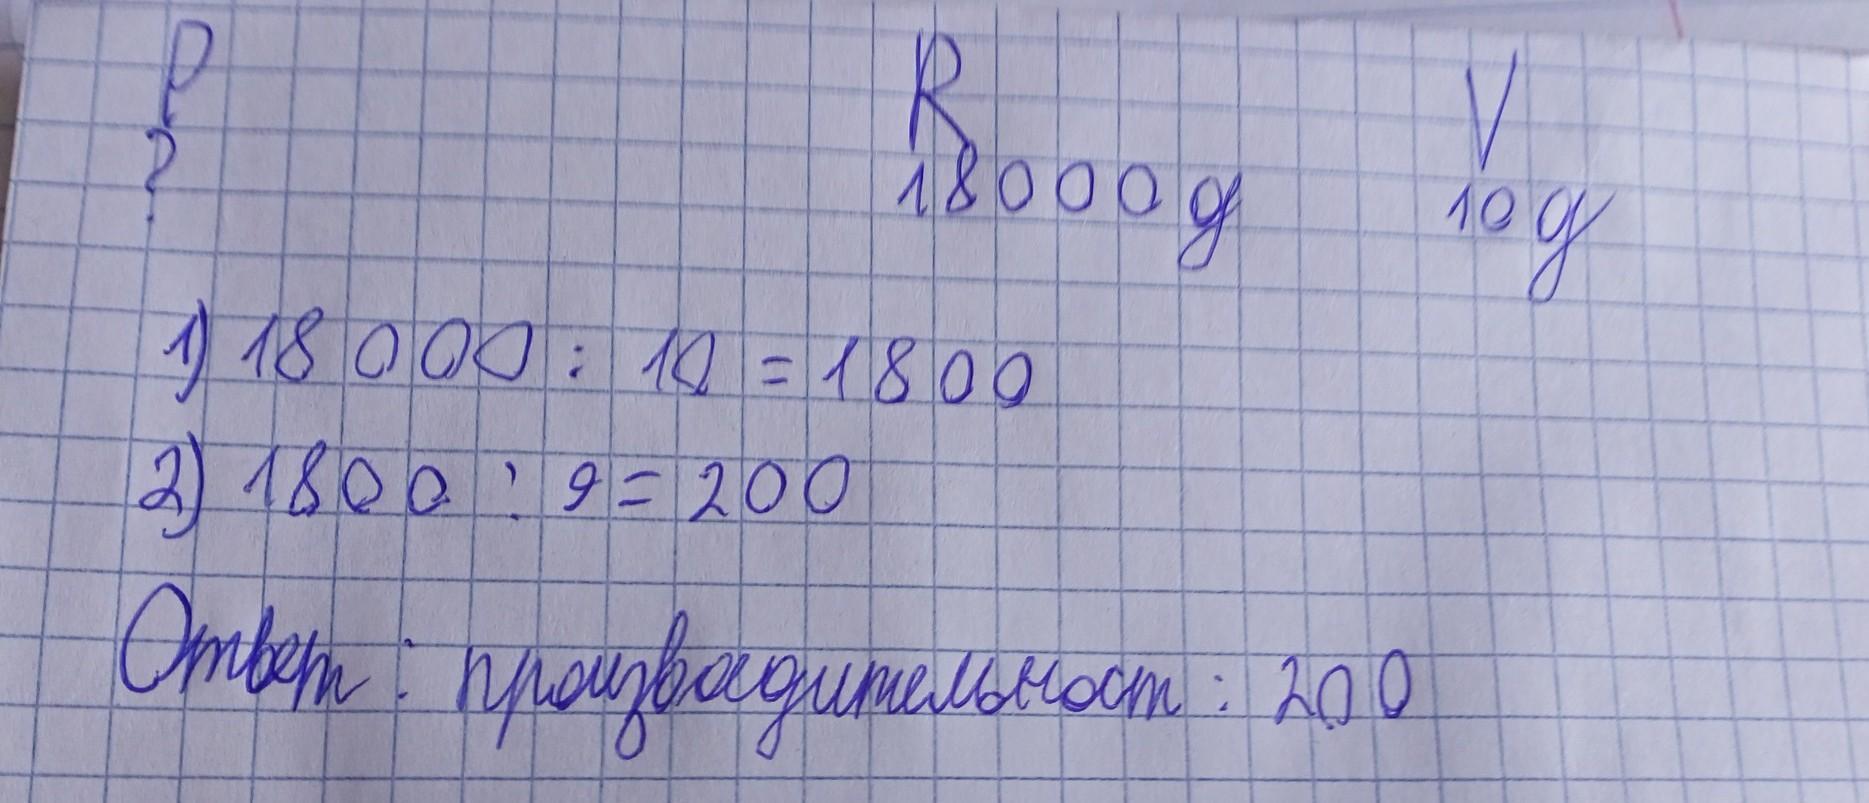 P R V
? 18000g 10g
1) 18000 : 10 = 1800
2) 1800 : 9 = 200
Ответ : производительност : 200